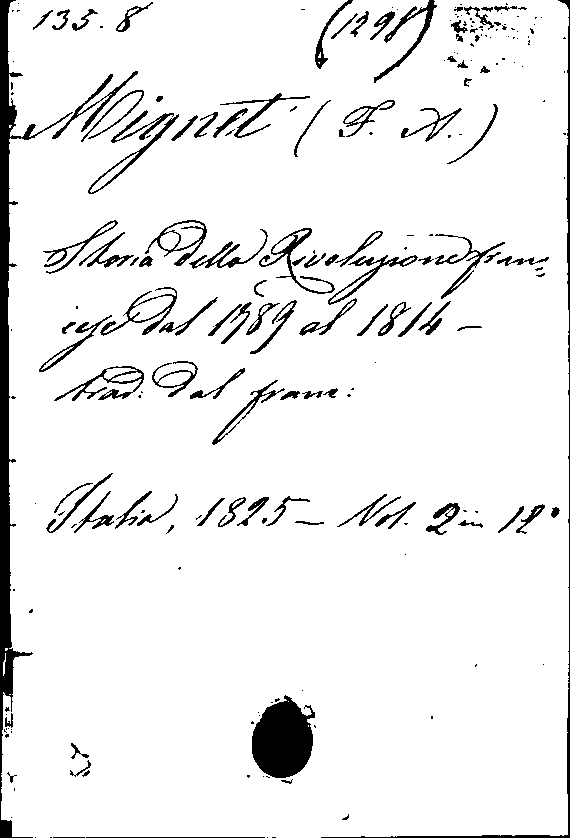 135.8 (1298)
Mignet (F. A.)
Storia della Rivoluzione fran=
cese dal 1789 al 1814 –
trad. dal franc:
Italia, 1825 – Vol. 2 in 12°